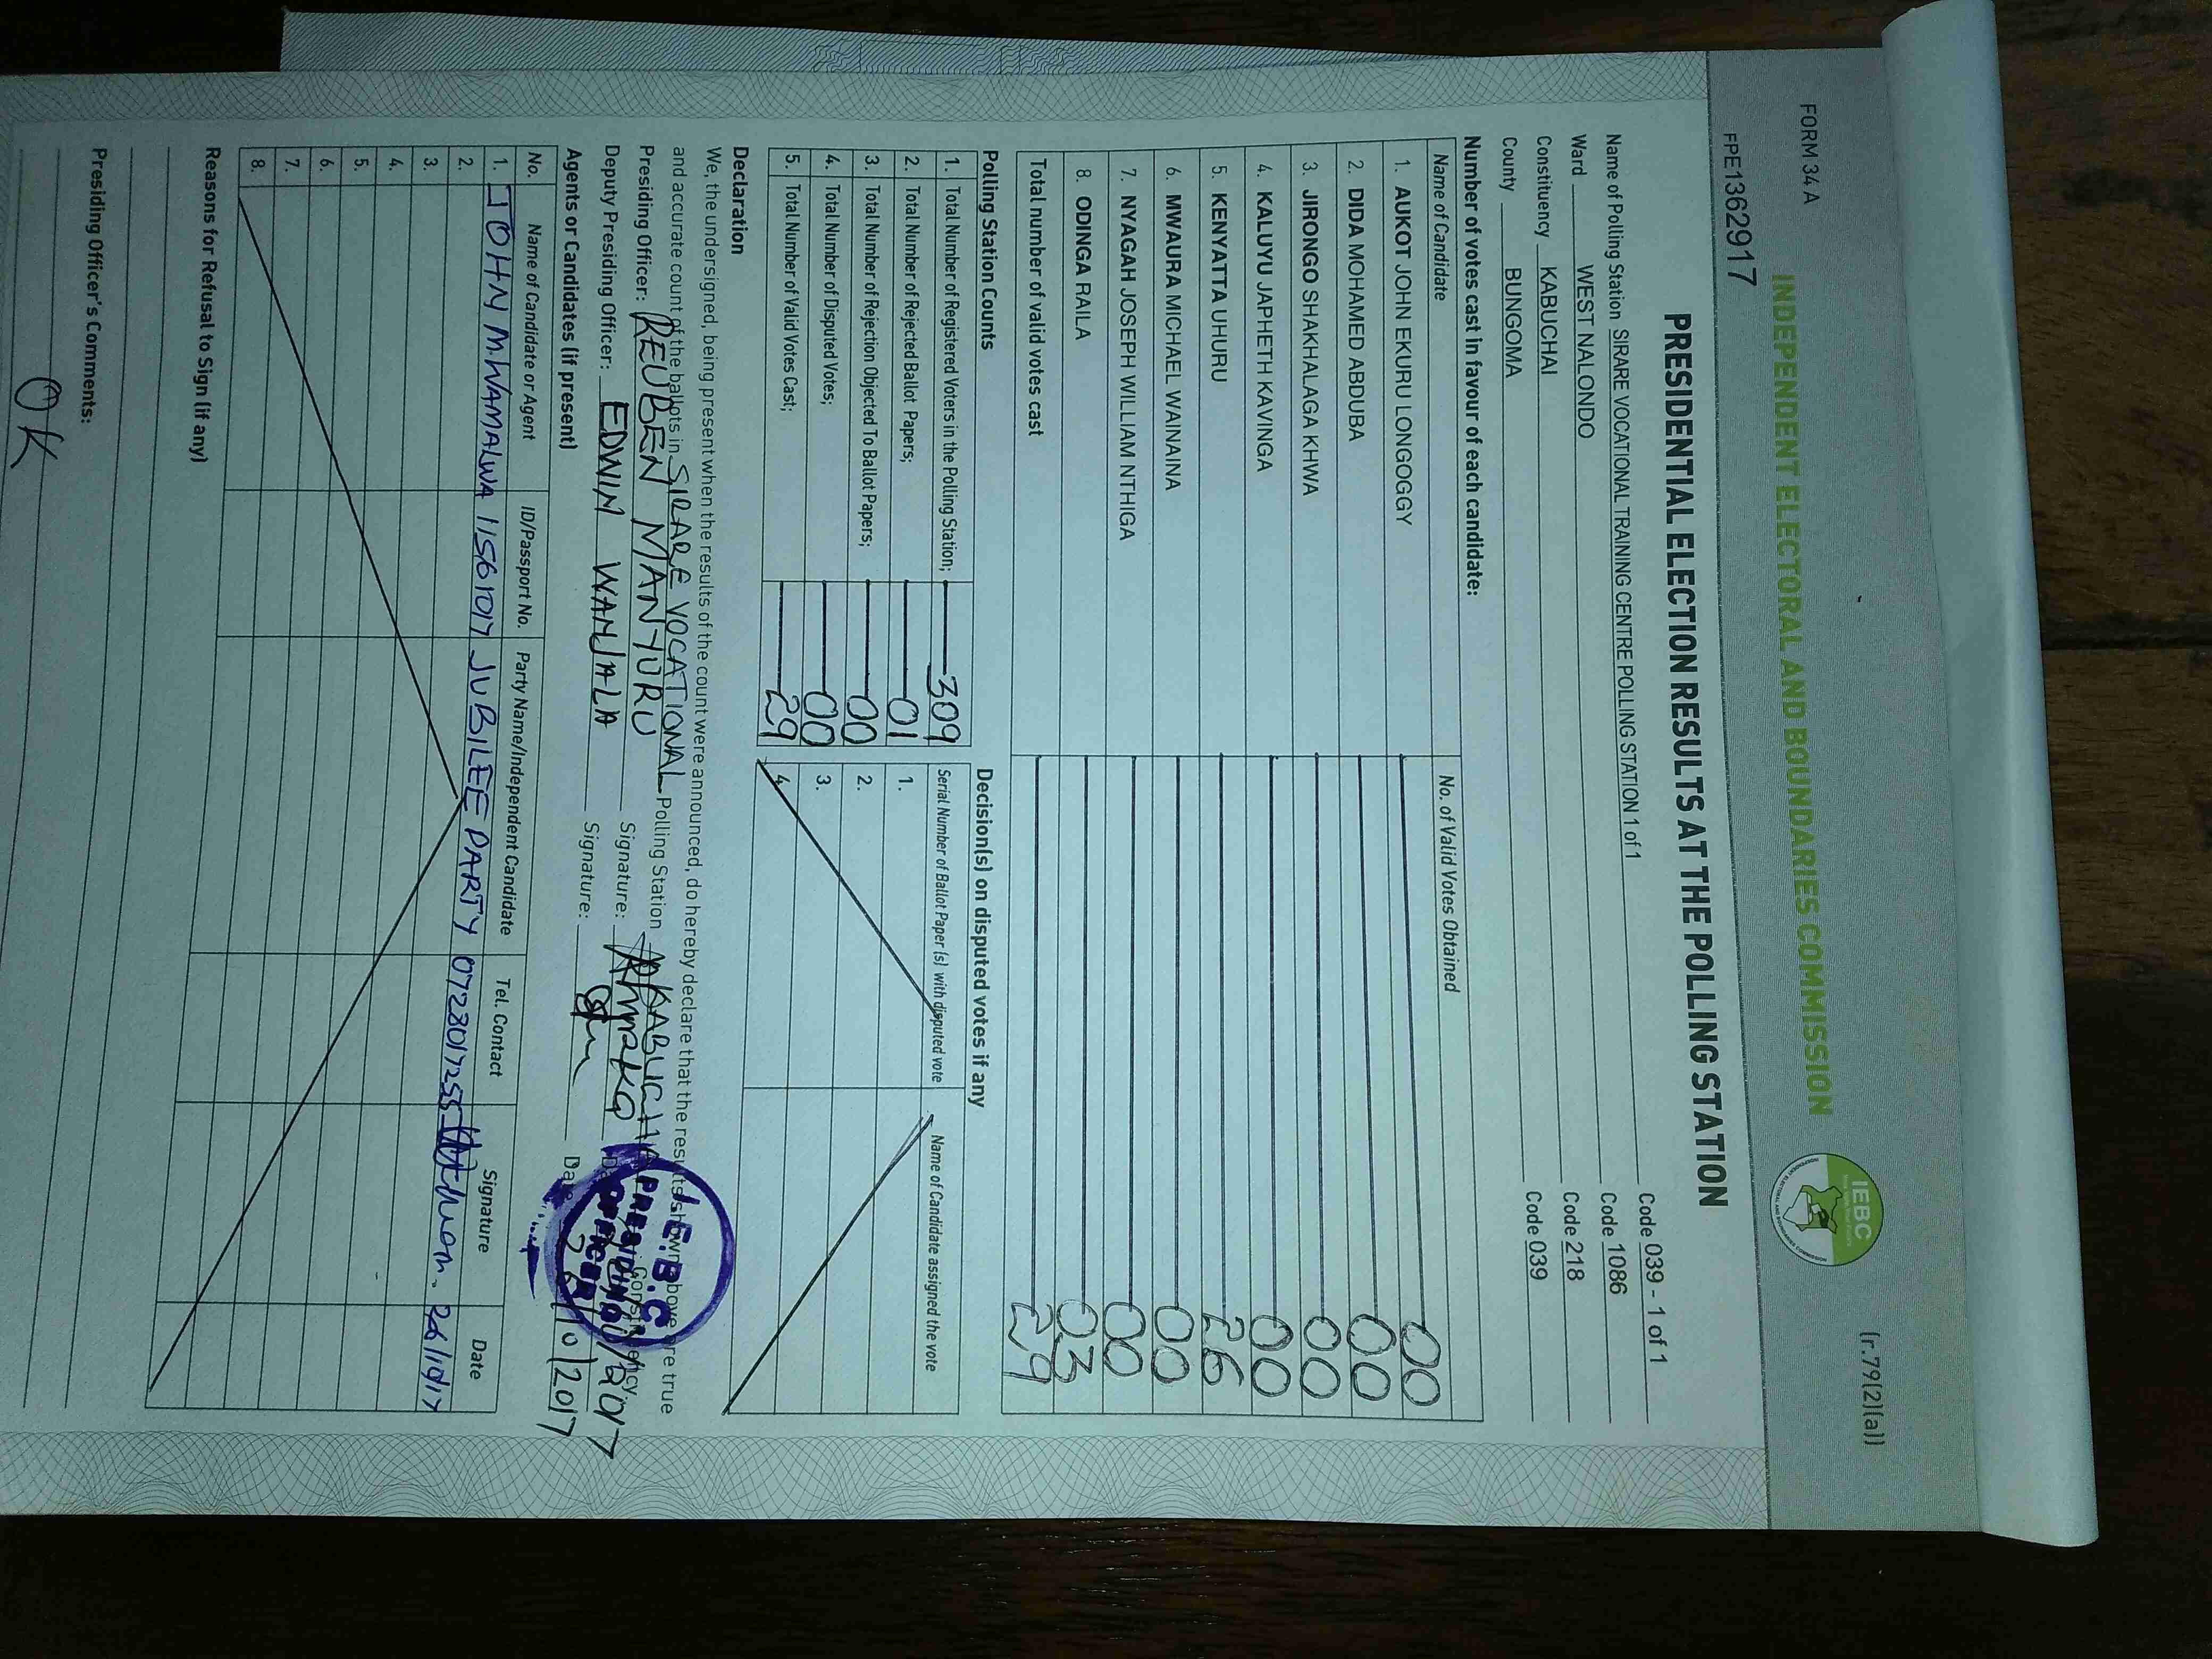 FORM 34 A
(r.79(2)(a))
INDEPENDENT ELECTORAL AND BOUNDARIES COMMISSION
IEBC
FPE1362917
PRESIDENTIAL ELECTION RESULTS AT THE POLLING STATION
Name of Polling Station SIRARE VOCATIONAL TRAINING CENTRE POLLING STATION 1 of 1 Code 039 - 1 of 1
Ward WEST NALONDO Code 1086
Constituency KABUCHAI Code 218
County BUNGOMA Code 039
Number of votes cast in favour of each candidate:
Name of Candidate No. of Valid Votes Obtained
1. AUKOT JOHN EKURU LONGOGGY 00
2. DIDA MOHAMED ABDUBA 00
3. JIRONGO SHAKHALAGA KHWA 00
4. KALUYU JAPHETH KAVINGA 00
5. KENYATTA UHURU 26
6. MWAURA MICHAEL WAINAINA 00
7. NYAGAH JOSEPH WILLIAM NTHIGA 00
8. ODINGA RAILA 03
Total number of valid votes cast 29
Polling Station Counts
1. Total Number of Registered Voters in the Polling Station; 309
2. Total Number of Rejected Ballot Papers; 01
3. Total Number of Rejection Objected To Ballot Papers; 00
4. Total Number of Disputed Votes; 00
5. Total Number of Valid Votes Cast; 29
Decision(s) on disputed votes if any
Serial Number of Ballot Paper (s) with disputed vote Name of Candidate assigned the vote
1.
2.
3.
4.
Declaration
We, the undersigned, being present when the results of the count were announced, do hereby declare that the results shown above are true
and accurate count of the ballots in SIRARE VOCATIONAL Polling Station KABUCHAI Constituency.
Presiding Officer: REUBEN MANYURU Signature: Date 26/10/2017
Deputy Presiding Officer: EDWIN WANJALA Signature: Date 26/10/2017
I.E.B.C
PRESIDING
OFFICER
Agents or Candidates (if present)
No. Name of Candidate or Agent ID/Passport No. Party Name/Independent Candidate Tel. Contact Signature Date
1. JOHN M. WAMALWA 11561017 JUBILEE PARTY 0728017255 26/10/17
2.
3.
4.
5.
6.
7.
8.
Reasons for Refusal to Sign (if any)
Presiding Officer's Comments:
OK